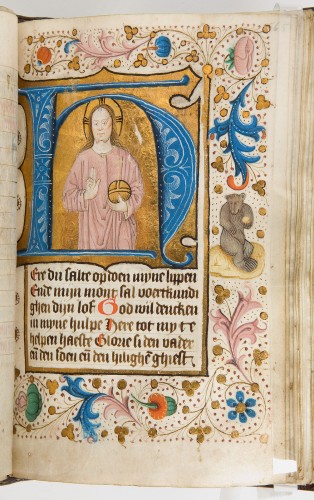 H
Ere du salte opdoen myne lippen
Ende mijn mont sal voertkund
ghen dijn lof God wil dencken
in myne hulpe Here tot my te
helpen haeste Glorie si den vader
eñ den soen eñ den hilighē ghiest